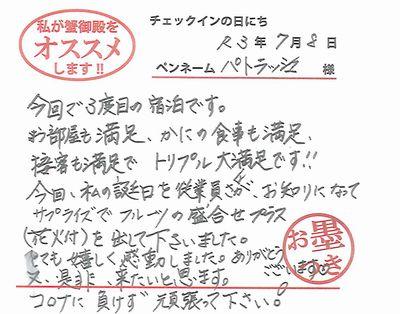 私が蟹御殿を
オススメ
します!!
チェックインの日にち
R3年7月8日
ペンネーム パトラッシュ 様
今回で3度目の宿泊です。
お部屋も満足、かにの食事も満足、
接客も満足で トリプル大満足です!!
今回、私の誕生日を従業員さんが、お知りになって
サプライズでフルーツの盛合せプラス
(花火付)を出して下さいました。
とても嬉しく感動しました。ありがとう
ございます。
又、是非、来たいと思います。
コロナに負けず頑張って下さい。
お墨
つき